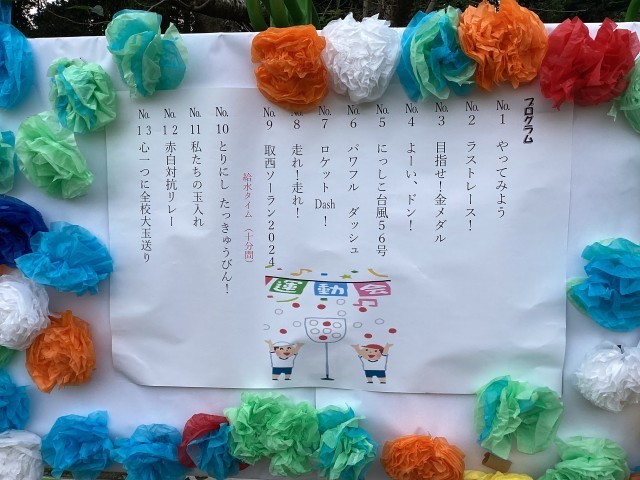 プログラム
No.1 やってみよう
No.2 ラストレース！
No.3 目指せ！金メダル
No.4 よーい、ドン！
No.5 にっしこ台風56号
No.6 パワフル ダッシュ
No.7 ロケットDash！
No.8 走れ！走れ！
No.9 取西ソーラン2024
給水タイム（十分間）
No.10 とりにし たっきゅうびん！
No.11 私たちの玉入れ
No.12 赤白対抗リレー
No.13 心一つに全校大玉送り
運動会